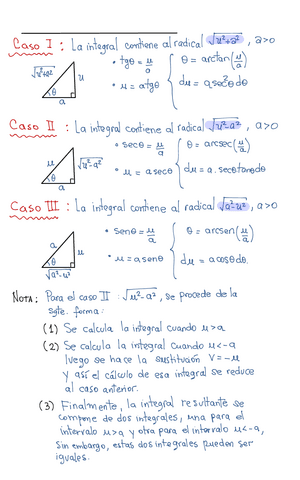 Caso I : La integral contiene al radical √u²+a² , a>0
√u²+a² u θ a
• tgθ = u/a
• u = atgθ
θ = arctan(u/a)
du = asec²θdθ
Caso II : La integral contiene al radical √u²-a² , a>0
u √u²-a² θ a
• secθ = u/a
• u = asecθ
θ = arcsec(u/a)
du = a.secθtanθdθ
Caso III : La integral contiene al radical √a²-u² , a>0
a u θ √a²-u²
• senθ = u/a
• u = asenθ
θ = arcsen(u/a)
du = acosθdθ.
NOTA: Para el caso II : √u²-a² , se procede de la
sgte. forma:
(1) Se calcula la integral cuando u>a
(2) Se calcula la integral cuando u<-a
luego se hace la sustitución V=-u
y así el cálculo de esa integral se reduce
al caso anterior.
(3) Finalmente, la integral resultante se
compone de dos integrales, una para el
intervalo u>a y otra para el intervalo u<-a,
Sin embargo, estas dos integrales pueden ser
iguales.